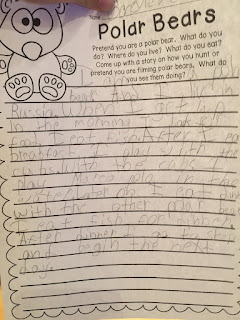 Name
Polar Bears
Pretend you are a polar bear. What do you
do? Where do you live? What do you eat?
Come up with a story on how you hunt or
pretend you are filming polar bears. What do
you see them doing?
bear. And I
Russia. When I get up
In the morning I look for
food. I eat After I eat
breakfast I play with the
cubs
play Marco polo in the
water. Later on I eat dinner
with the other polar bears
I eat fish for dinner.
After dinner I go to sleep
and begin the next
day.